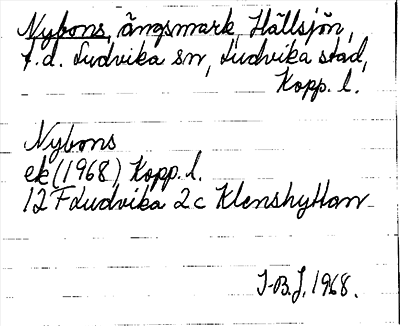 Nybons, ängsmark, Hällsjön,
f.d. Ludvika sn, Ludvika stad,
Kopp. l.
Nybons
ek (1968) Kopp. l.
12 F Ludvika 2c Klenshyttan
I-B.J. 1968.